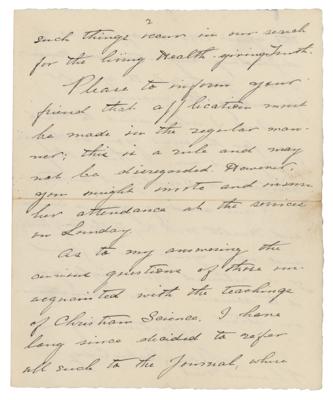 2
such things occur in our search
for the living Health-giving Truth.
Please to inform your
friend that application must
be made in the regular man-
ner; this is a rule and may
not be disregarded. However,
you might invite and insure
her attendance at the services
on Sunday
As to my answering the
curious questions of those un-
acquainted with the teachings
of Christian Science, I have
long since decided to refer
all such to the Journal, where